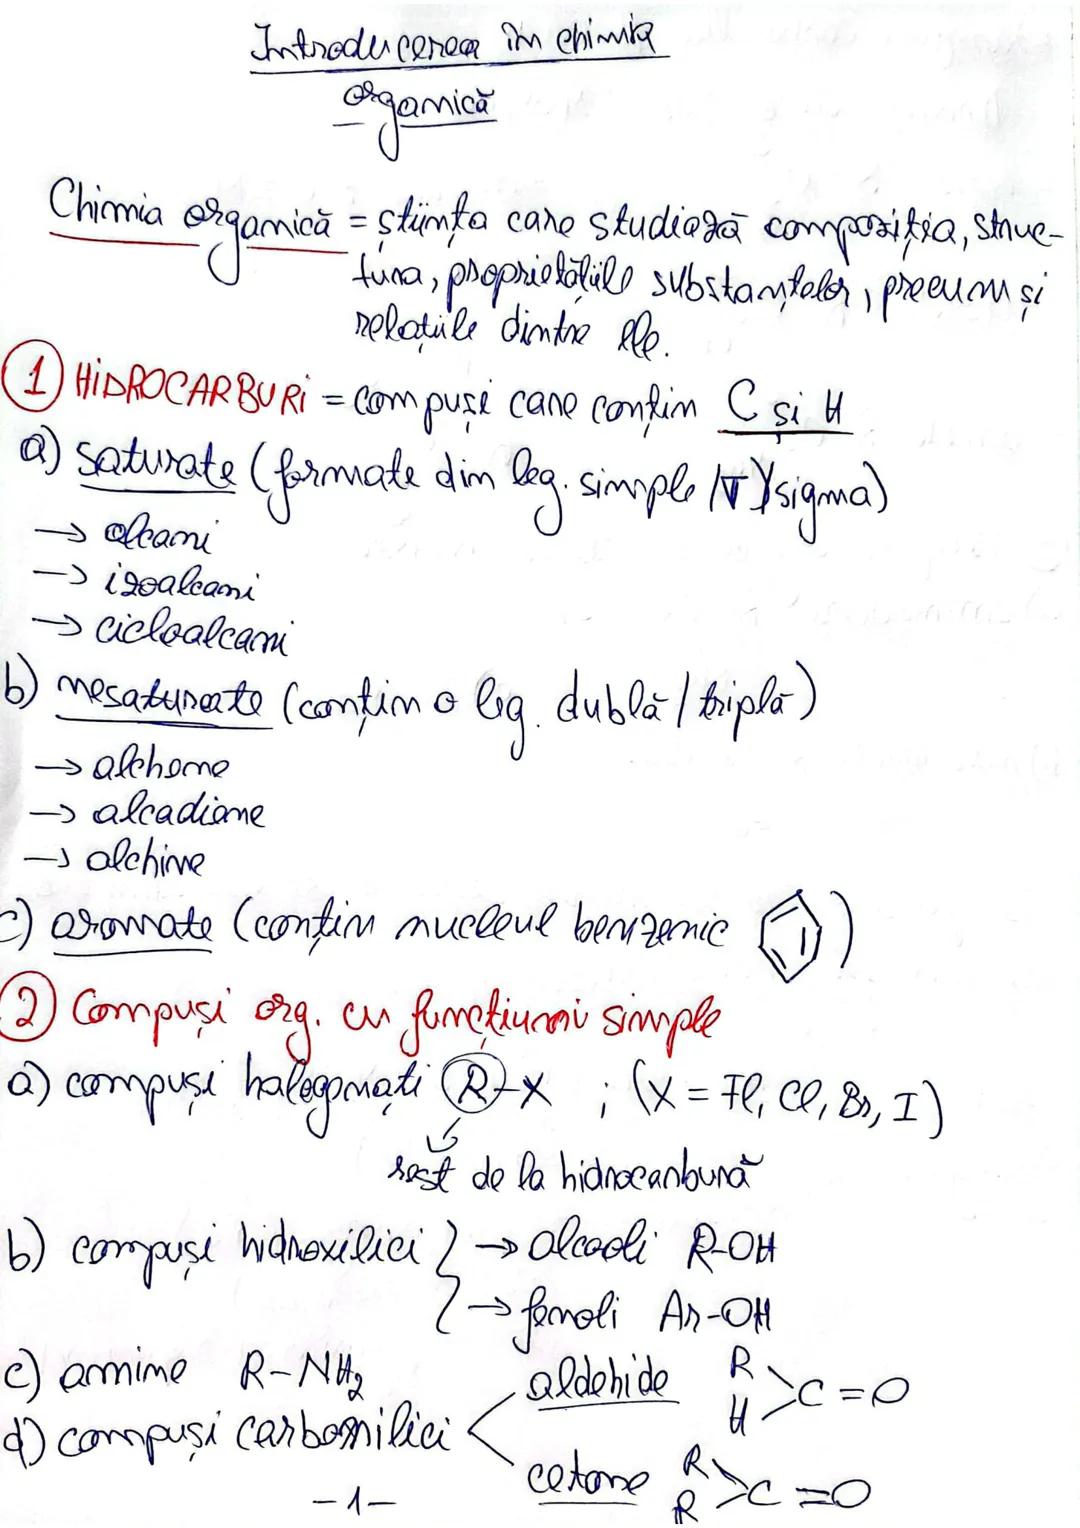 Introducerea în chimia
organică
Chimia organică = știința care studiază compoziția, struc-
tura, proprietățiile substanțelor, precum și
relațiile dintre ele.
1 HIDROCARBURI = compuși care conțin C și H
a) saturate (formate din leg. simple / sigma)
→ alcani
→ izoalcani
→ cicloalcani
b) nesaturate (conțin o leg. dublă / triplă)
→ alchene
→ alcadiene
→ alchine
c) aromate (conțin nucleul benzenic )
2 Compuși org. cu funcțiuni simple
a) compuși halogenați R-X ; (X = Fl, Cl, Br, I)
rest de la hidrocarbură
b) compuși hidroxilici → alcooli R-OH
→ fenoli Ar-OH
c) amine R-NH2
aldehide R H C=O
d) compuși carbonilici
cetone R R C=O
-1-